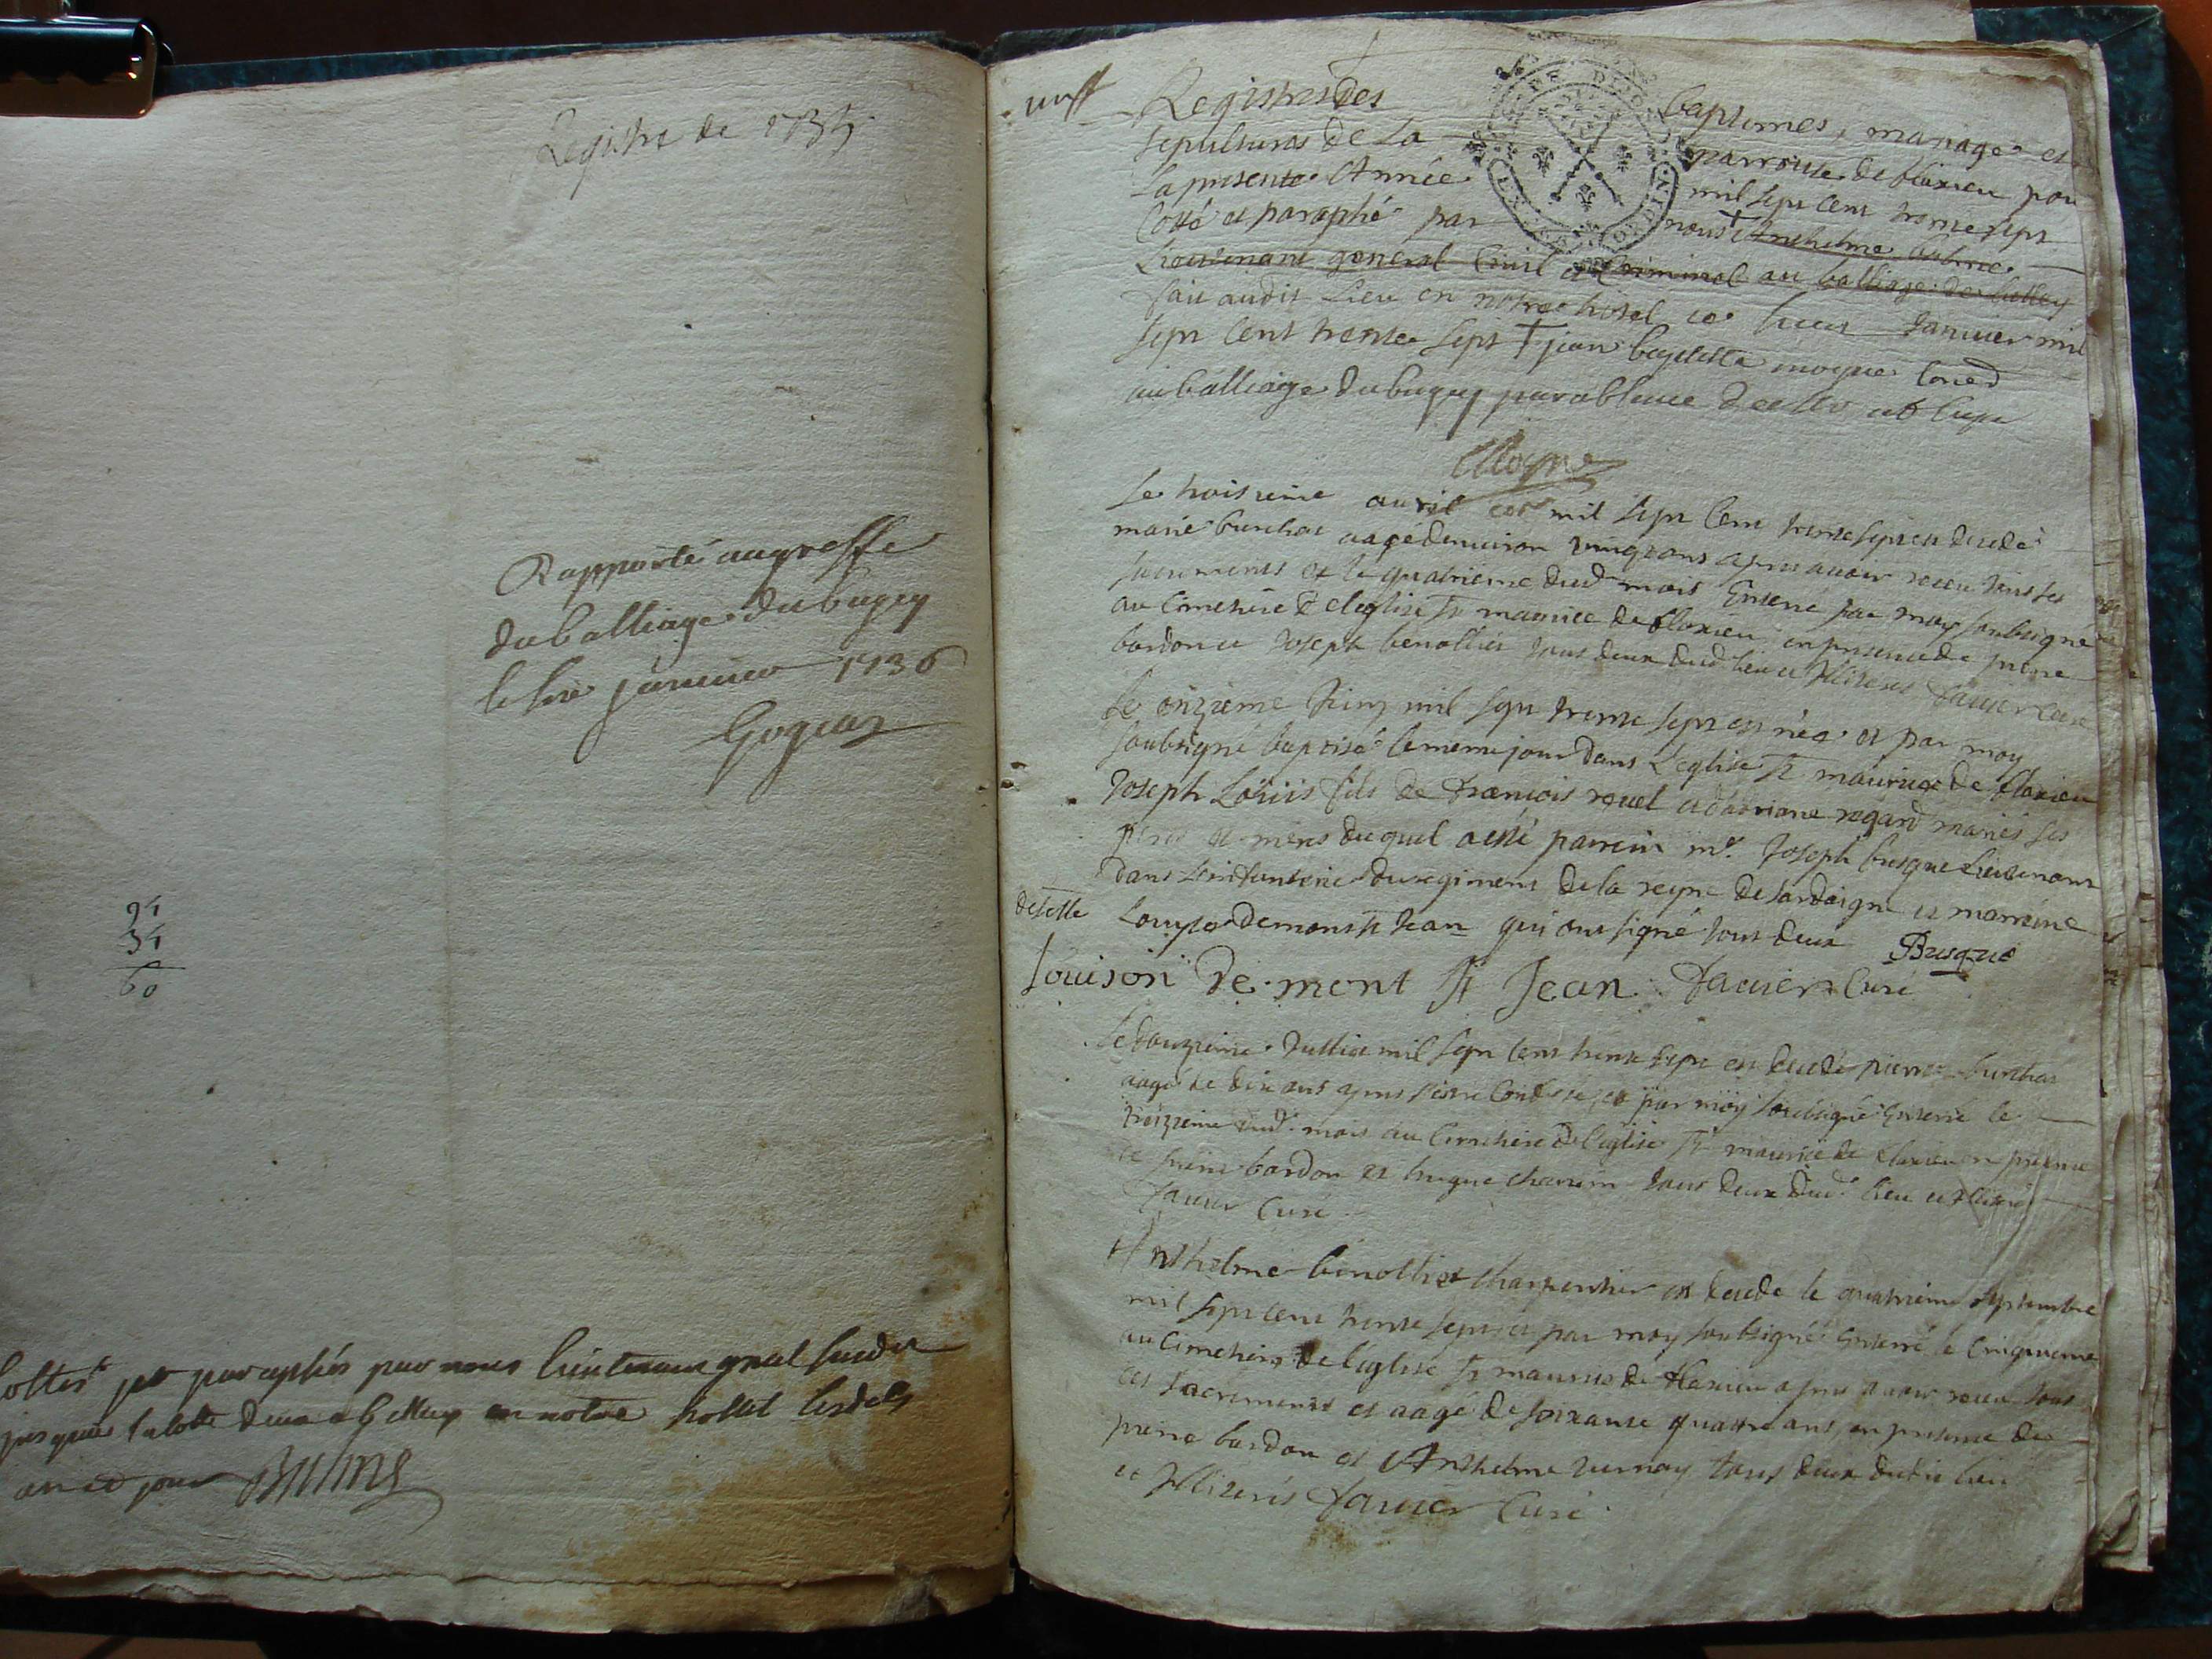 Registre de 1735
Rapporté au greffe
du balliage du bugey
le janvier 1736
Gogeat
94
34
60
cottés et paraphés par nous lieutenant gnal
jusques la cotte deux a belley en notre hostel lesdits
an et jour
Registres des baptemes, mariage et
sepultures de La parroisse de flaxieu pour
La presente Année mil sept cent trente sept
Cotté et paraphé par nous † Anthelme
Lieutenant general Civil et Criminel au balliage de belley
fait audit Lieu en notre hotel ce huit Janvier mil
sept cent trente sept † jean baptiste moyne
au balliage du bugey par absence
Moyne
Le troisieme avril mil sept cent trente sept est decedé
marie burchat aagé denviron vingt ans apres avoir receu tous ses
sacrements et le quatrieme dud mois Enterré par moy soubsigné
au Cimetiere de leglise st maurice de flaxieu en presence de pierre
bardon et Joseph benollier tous deux dud lieu et Illiterés favier curé
Le onzieme Juin mil sept trente sept est née et par moy
soubsigné baptisé le meme jour dans L'eglise st maurice de flaxieu
Joseph Loüis fils de francois revel et darriane regard mariés ses
peres et meres duquel a esté parrein mr. Joseph busque Lieutenant
dans L'infanterie du regiment de la reyne de sardaigne et marreine
deselle Louyse de mont st Jean qui ont signé tous deux Busque
Louison De mont st Jean favier Curé
Le douzieme Juillet mil sept cent trente sept est decedé pierre burchat
aagé de dix ans apres s'estre Confessé, et par moy soubsigné Enterré le
treizieme dud. mois au Cimetiere de l'eglise st maurice de flaxieu en presence
de pierre bardon et hugue tous deux dud. lieu et Illiterés
favier Curé
Anthelme benollier Charpentier est decede le quatrieme septembre
mil sept cent trente sept et par moy soubsigné Enterré le Cinquieme
au Cimetiere de l'église st maurice de flaxieu apres avoir receu tous
ces sacrements et aagé de soixante quattre ans, en presence de
pierre bardon et Anthelme vernay tous deux dudit lieu
et Illiterés favier Curé